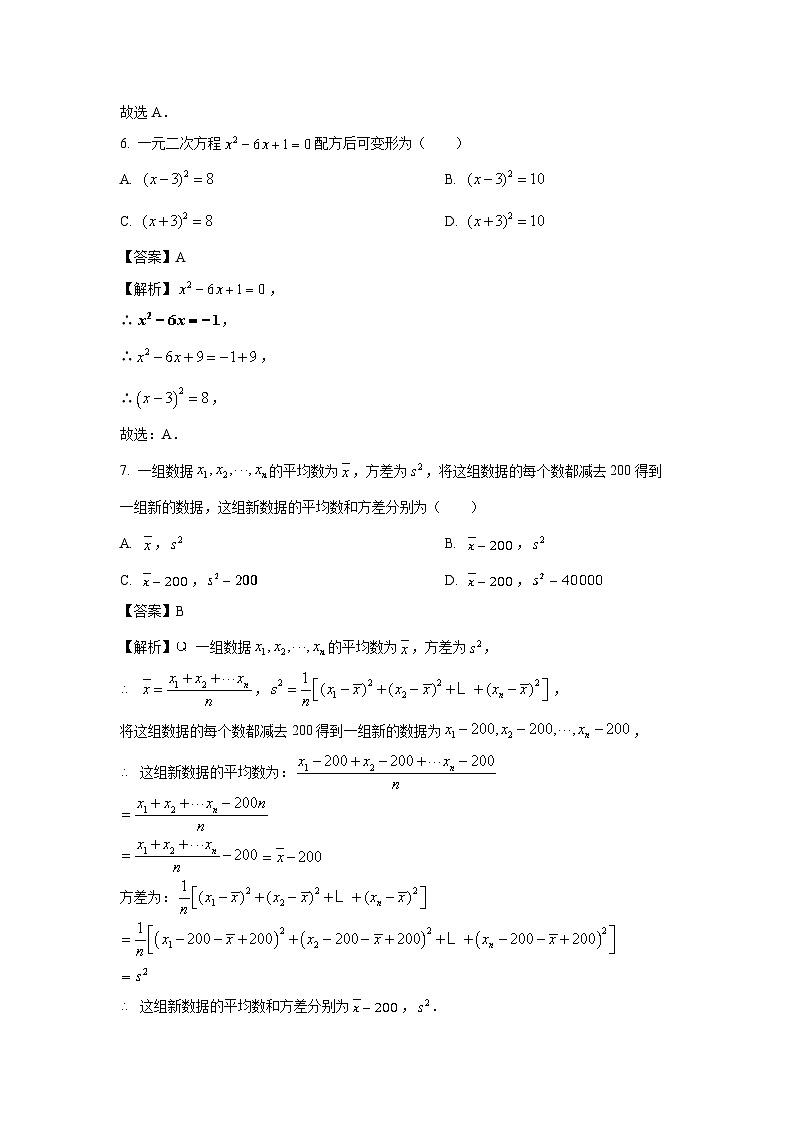 故选 A．
6. 一元二次方程 x² − 6x + 1 = 0 配方后可变形为（　　）
A. (x − 3)² = 8　　B. (x − 3)² = 10
C. (x + 3)² = 8　　D. (x + 3)² = 10
【答案】A
【解析】x² − 6x + 1 = 0，
∴ x² − 6x = −1，
∴ x² − 6x + 9 = −1 + 9，
∴ (x − 3)² = 8，
故选：A．
7. 一组数据 x₁, x₂, ⋯, xₙ 的平均数为 x̄，方差为 s²，将这组数据的每个数都减去 200 得到
一组新的数据，这组新数据的平均数和方差分别为（　　）
A. x̄，s²　　B. x̄ − 200，s²
C. x̄ − 200，s² − 200　　D. x̄ − 200，s² − 40000
【答案】B
【解析】Q 一组数据 x₁, x₂, ⋯, xₙ 的平均数为 x̄，方差为 s²，
∴ x̄ = (x₁ + x₂ + ⋯xₙ)/n，s² = 1/n[(x₁ − x̄)² + (x₂ − x̄)² + L + (xₙ − x̄)²]，
将这组数据的每个数都减去 200 得到一组新的数据为 x₁ − 200, x₂ − 200, ⋯, xₙ − 200，
∴ 这组新数据的平均数为：(x₁ − 200 + x₂ − 200 + ⋯xₙ − 200)/n
= (x₁ + x₂ + ⋯xₙ − 200n)/n
= (x₁ + x₂ + ⋯xₙ)/n − 200 = x̄ − 200
方差为：1/n[(x₁ − x̄)² + (x₂ − x̄)² + L + (xₙ − x̄)²]
= 1/n[(x₁ − 200 − x̄ + 200)² + (x₂ − 200 − x̄ + 200)² + L + (xₙ − 200 − x̄ + 200)²]
= s²
∴ 这组新数据的平均数和方差分别为 x̄ − 200，s²．